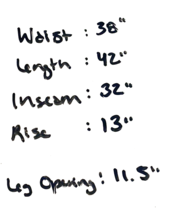 Waist : 38"
Length : 42"
Inseam : 32"
Rise : 13"
Leg Opening : 11.5"